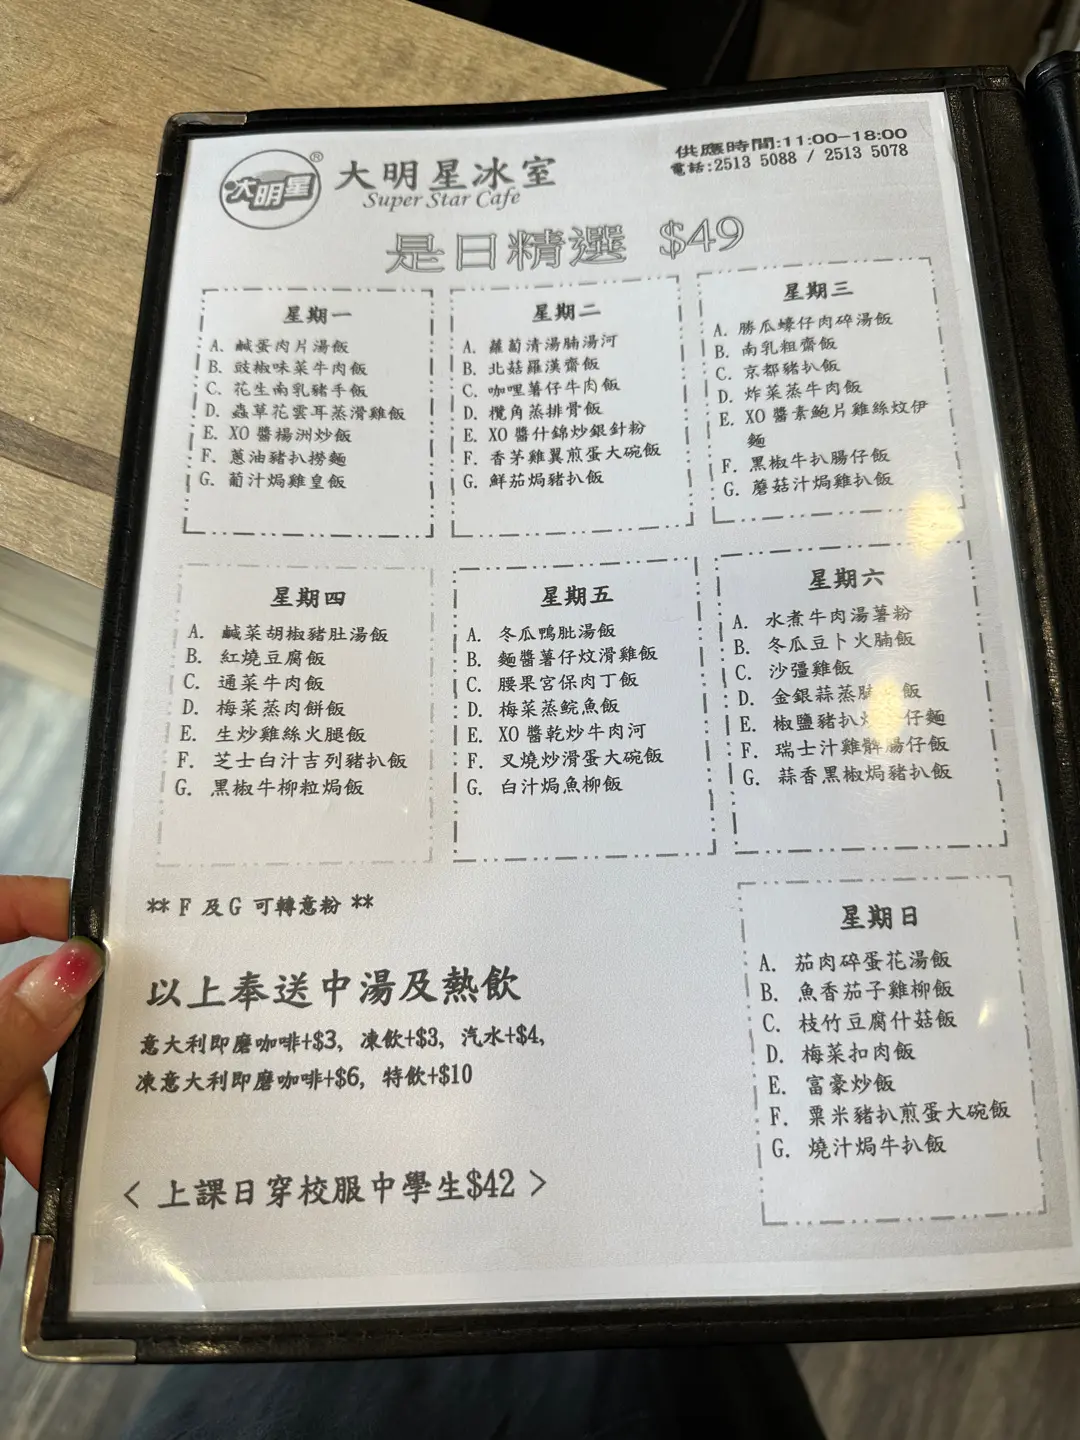 大明星®
大明星冰室
Super Star Cafe
供應時間:11:00-18:00
電話:2513 5088 / 2513 5078
是日精選 $49
星期一
A. 鹹蛋肉片湯飯
B. 豉椒味菜牛肉飯
C. 花生南乳豬手飯
D. 蟲草花雲耳蒸滑雞飯
E. XO 醬揚洲炒飯
F. 蔥油豬扒撈麵
G. 葡汁焗雞皇飯
星期二
A. 蘿蔔清湯腩湯河
B. 北菇羅漢齋飯
C. 咖哩薯仔牛肉飯
D. 欖角蒸排骨飯
E. XO 醬什錦炒銀針粉
F. 香茅雞翼煎蛋大碗飯
G. 鮮茄焗豬扒飯
星期三
A. 勝瓜蠔仔肉碎湯飯
B. 南乳粗齋飯
C. 京都豬扒飯
D. 炸菜蒸牛肉飯
E. XO 醬素鮑片雞絲炆伊
麵
F. 黑椒牛扒腸仔飯
G. 蘑菇汁焗雞扒飯
星期四
A. 鹹菜胡椒豬肚湯飯
B. 紅燒豆腐飯
C. 通菜牛肉飯
D. 梅菜蒸肉餅飯
E. 生炒雞絲火腿飯
F. 芝士白汁吉列豬扒飯
G. 黑椒牛柳粒焗飯
星期五
A. 冬瓜鴨肶湯飯
B. 麵醬薯仔炆滑雞飯
C. 腰果宮保肉丁飯
D. 梅菜蒸鯇魚飯
E. XO 醬乾炒牛肉河
F. 叉燒炒滑蛋大碗飯
G. 白汁焗魚柳飯
星期六
A. 水煮牛肉湯薯粉
B. 冬瓜豆卜火腩飯
C. 沙彊雞飯
D. 金銀蒜蒸 飯
E. 椒鹽豬扒 仔麵
F. 瑞士汁雞髀腸仔飯
G. 蒜香黑椒焗豬扒飯
** F 及 G 可轉意粉 **
以上奉送中湯及熱飲
意大利即磨咖啡+$3, 凍飲+$3, 汽水+$4,
凍意大利即磨咖啡+$6, 特飲+$10
< 上課日穿校服中學生$42 >
星期日
A. 茄肉碎蛋花湯飯
B. 魚香茄子雞柳飯
C. 枝竹豆腐什菇飯
D. 梅菜扣肉飯
E. 富豪炒飯
F. 粟米豬扒煎蛋大碗飯
G. 燒汁焗牛扒飯